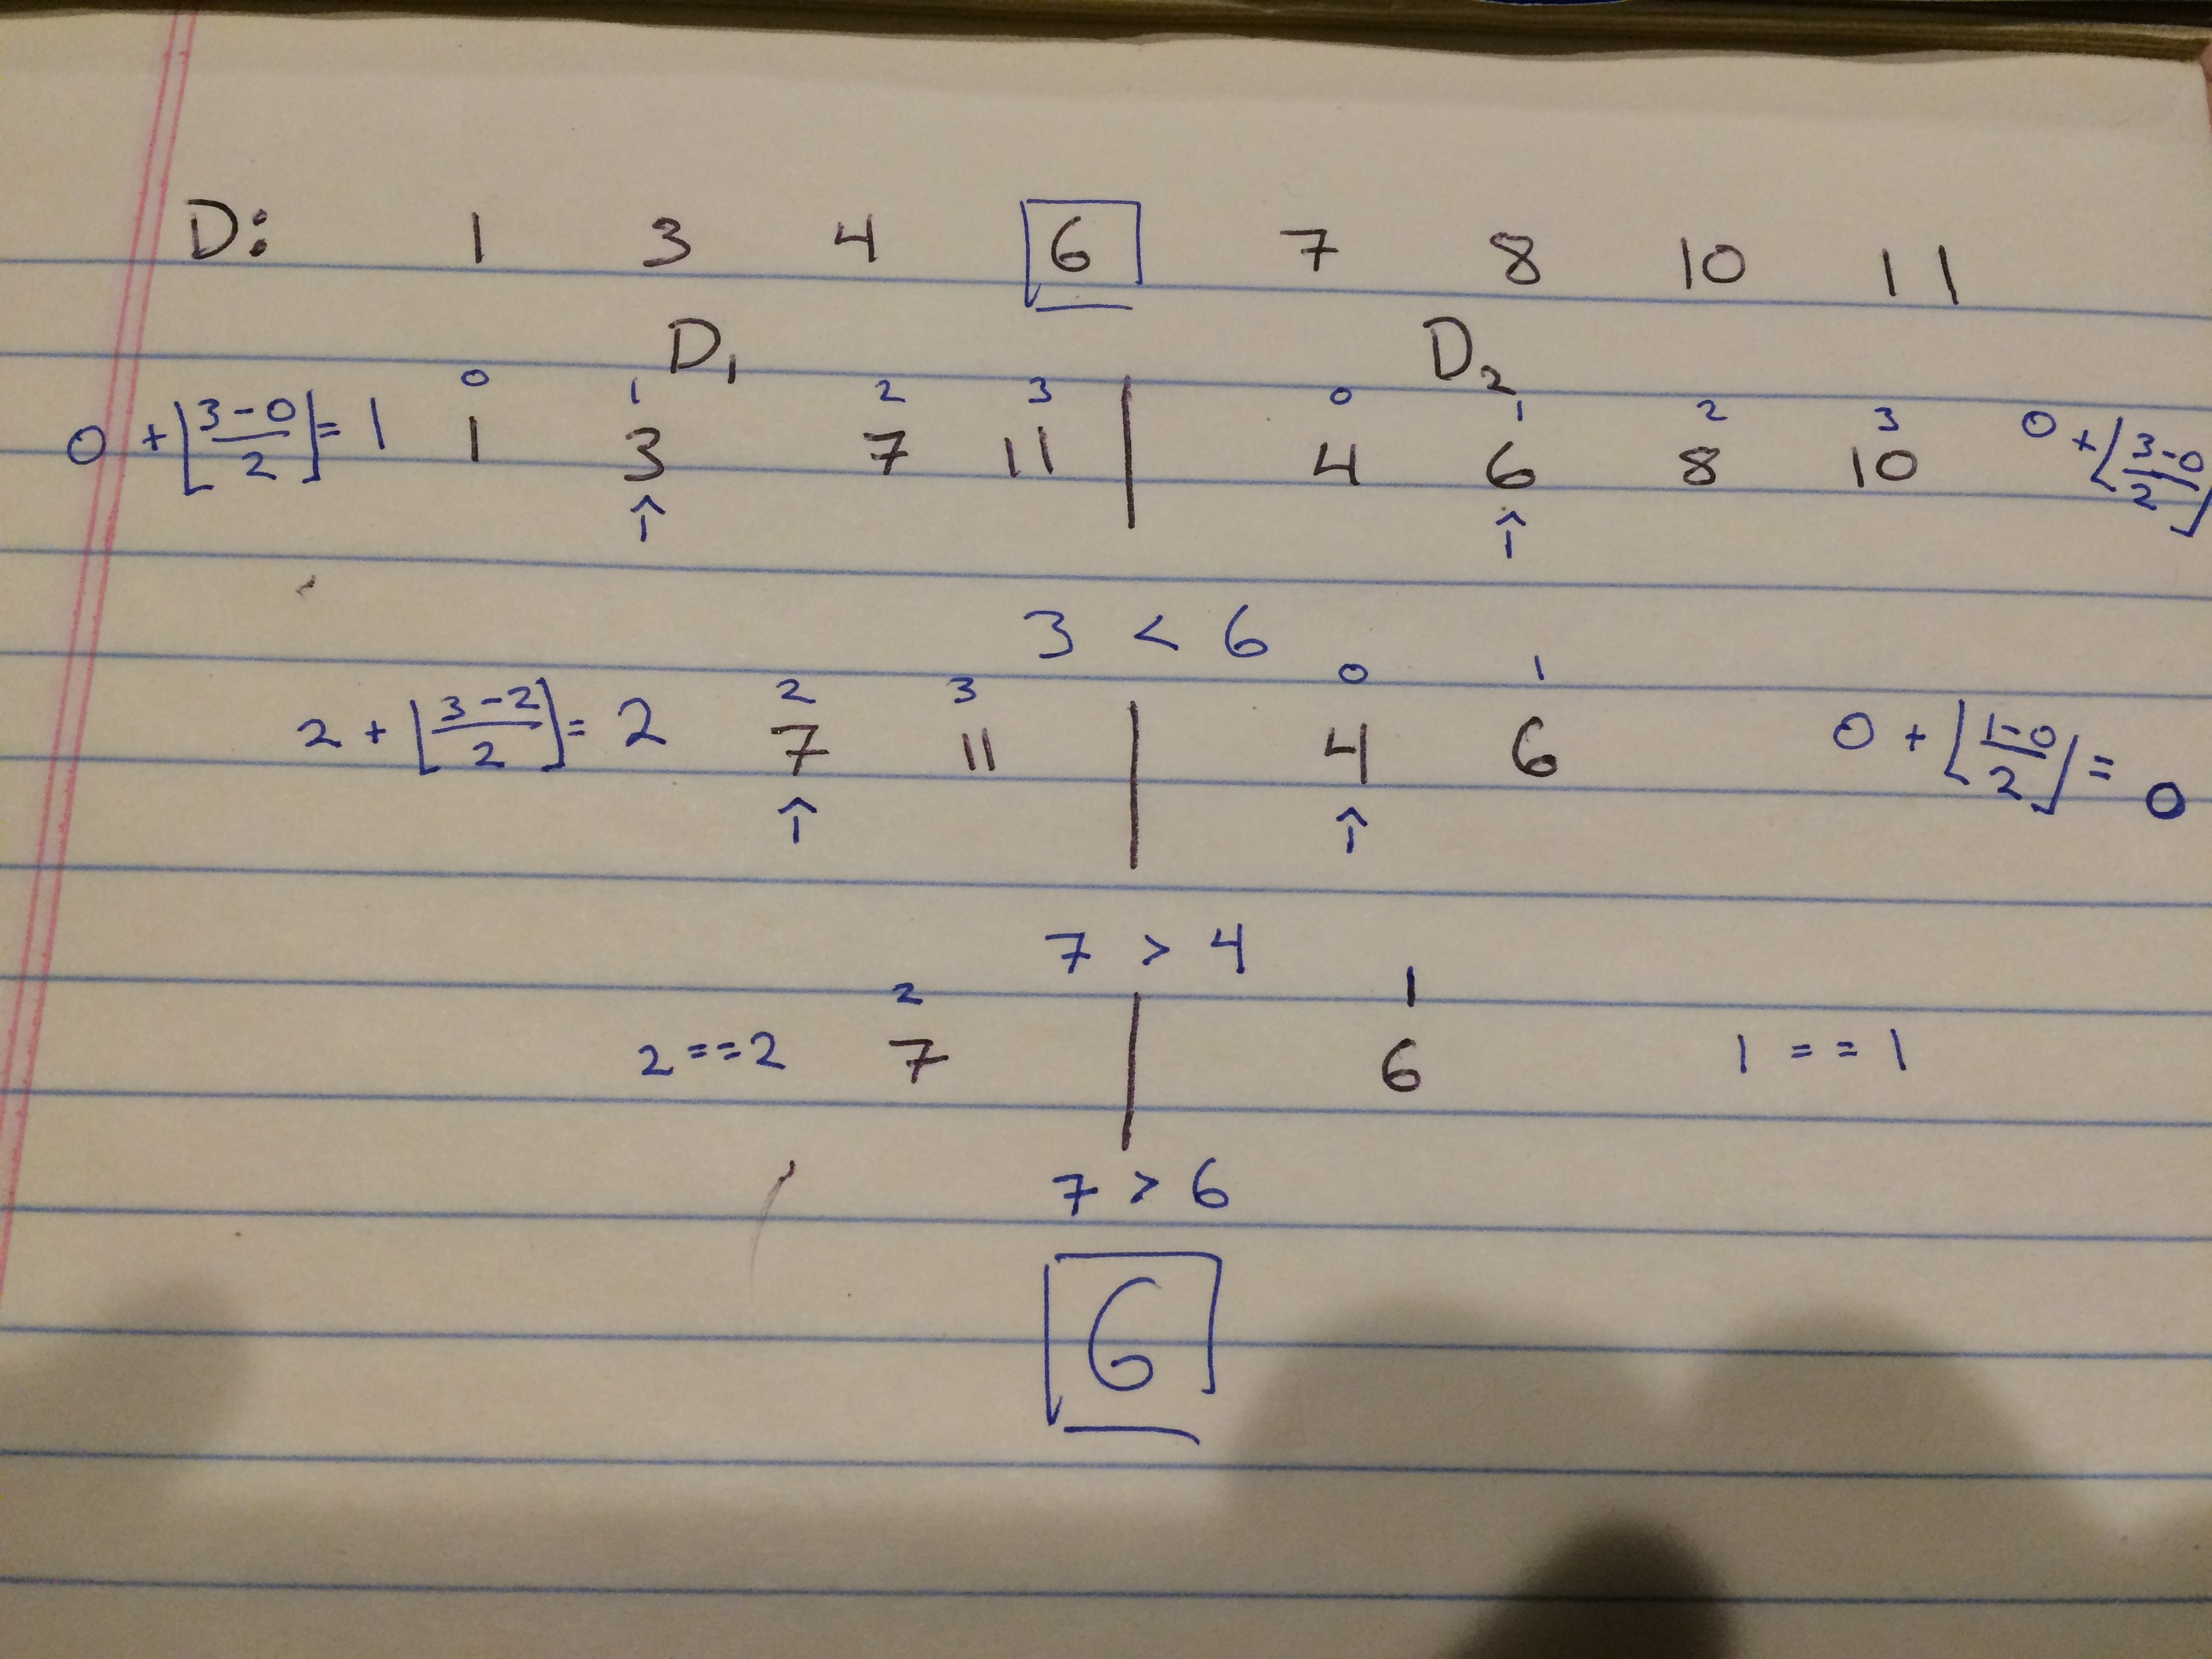 D: 1 3 4 6 7 8 10 11
D₁ D₂
0 1 2 3 0 1 2 3
0 + ⌊(3-0)/2⌋ = 1 1 3 7 11 | 4 6 8 10 0 + ⌊(3-0)/2⌋
↑ ↑
3 < 6
2 3 0 1
2 + ⌊(3-2)/2⌋ = 2 7 11 | 4 6 0 + ⌊(1-0)/2⌋ = 0
↑ ↑
7 > 4
2 1
2 == 2 7 | 6 1 == 1
7 > 6
6